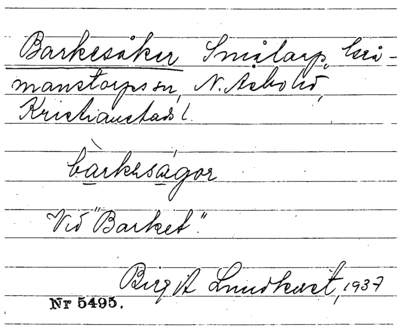 Barkesåker Smålarp, Grå-
manstorps sn, N. Åsbo hd,
Kristianstads l.
bàrkesågor
Vid "Barket".
Birgit Lundkvist, 1937
Nr 5495.